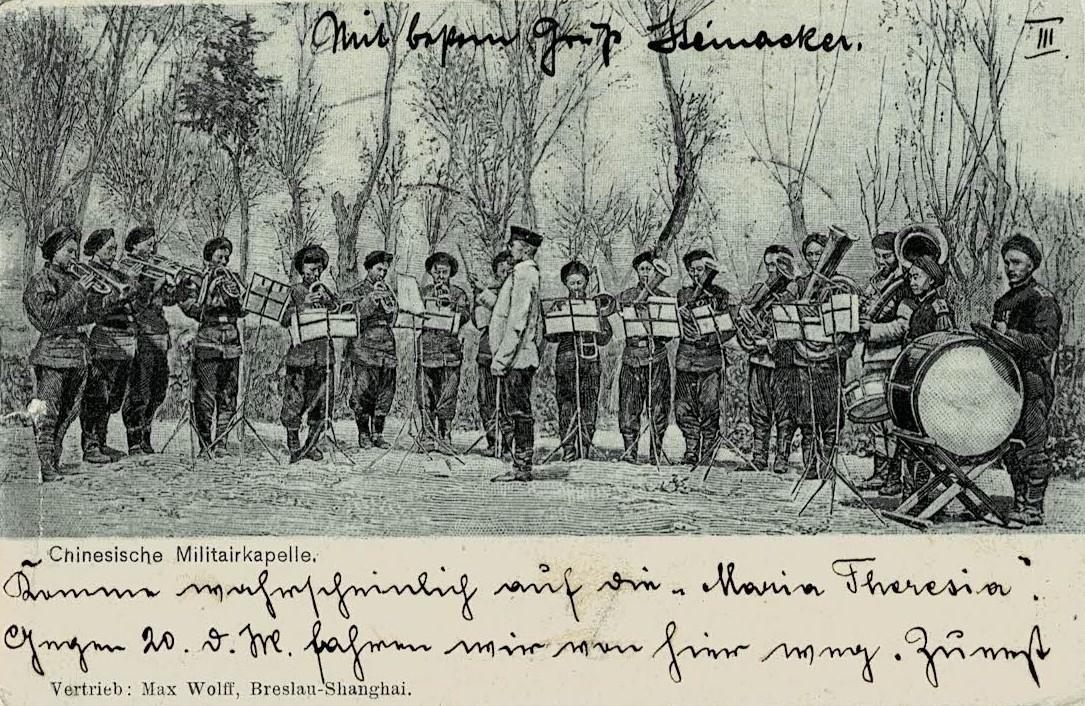 Mit bestem Gruß Steinacker.
III
Chinesische Militairkapelle.
Komme wahrscheinlich auf die „Maria Theresia“.
Gegen 20. d. M. fahren wir von hier weg. Zuerst
Vertrieb: Max Wolff, Breslau-Shanghai.